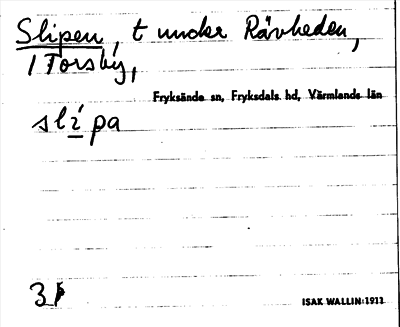 Slipen, t under Rävheden,
1 Torsby,
Fryksände sn, Fryksdals hd, Värmlands län
slípa
3
ISAK WALLIN 1911